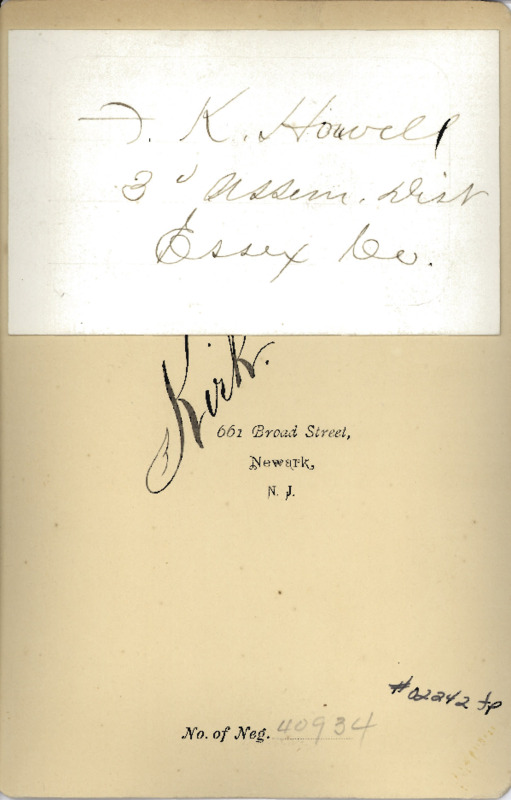 F. K. Howell
3d Assem. Dist
Essex Co.
Kirk.
661 Broad Street,
Newark,
N. J.
#02242
No. of Neg. 40934